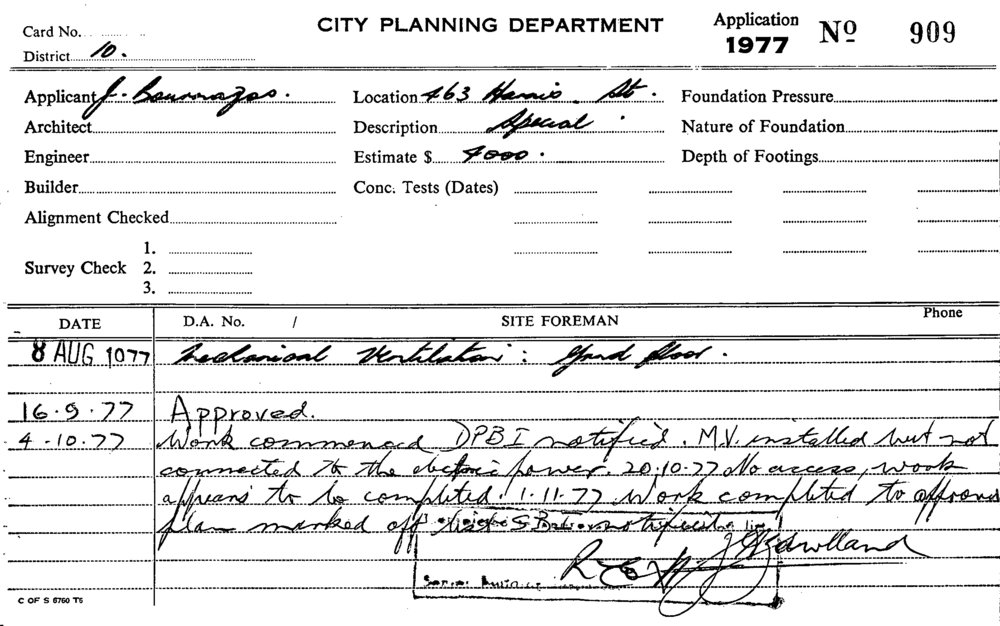 Card No.
CITY PLANNING DEPARTMENT
Application 1977 Nº 909
District 10.
Applicant J. Bournazos. Location 463 Harris St. Foundation Pressure
Architect Description Special. Nature of Foundation
Engineer Estimate $ 4000. Depth of Footings
Builder Conc. Tests (Dates)
Alignment Checked
1.
Survey Check 2.
3.
DATE D.A. No. / SITE FOREMAN Phone
8 AUG 1977 Mechanical Ventilation: Grnd floor.
16.9.77 Approved.
4.10.77 Work commenced DPBI notified. M.V. installed but not
connected to the electric power. 20.10.77 No access, work
appears to be completed. 1.11.77 Work completed to approved
plan marked off
C OF S 6760 T5